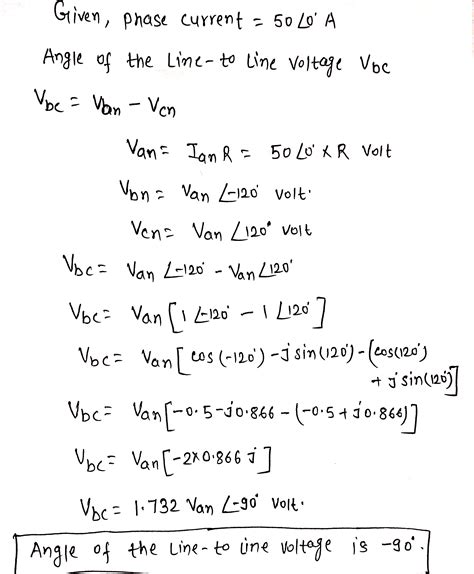 Given, phase current = 50∠0° A
Angle of the Line-to Line voltage Vbc
Vbc = Vbn - Vcn
Van = Ian R = 50∠0° × R Volt
Vbn = Van ∠-120° volt.
Vcn = Van ∠120° volt
Vbc = Van ∠-120° - Van ∠120°
Vbc = Van [1 ∠-120° - 1 ∠120°]
Vbc = Van [cos (-120°) - j sin(120°) - (cos(120°)
+ j sin(120°)]
Vbc = Van [-0.5 - j0.866 - (-0.5 + j0.866)]
Vbc = Van [-2×0.866 j]
Vbc = 1.732 Van ∠-90° Volt.
Angle of the Line-to Line voltage is -90°.